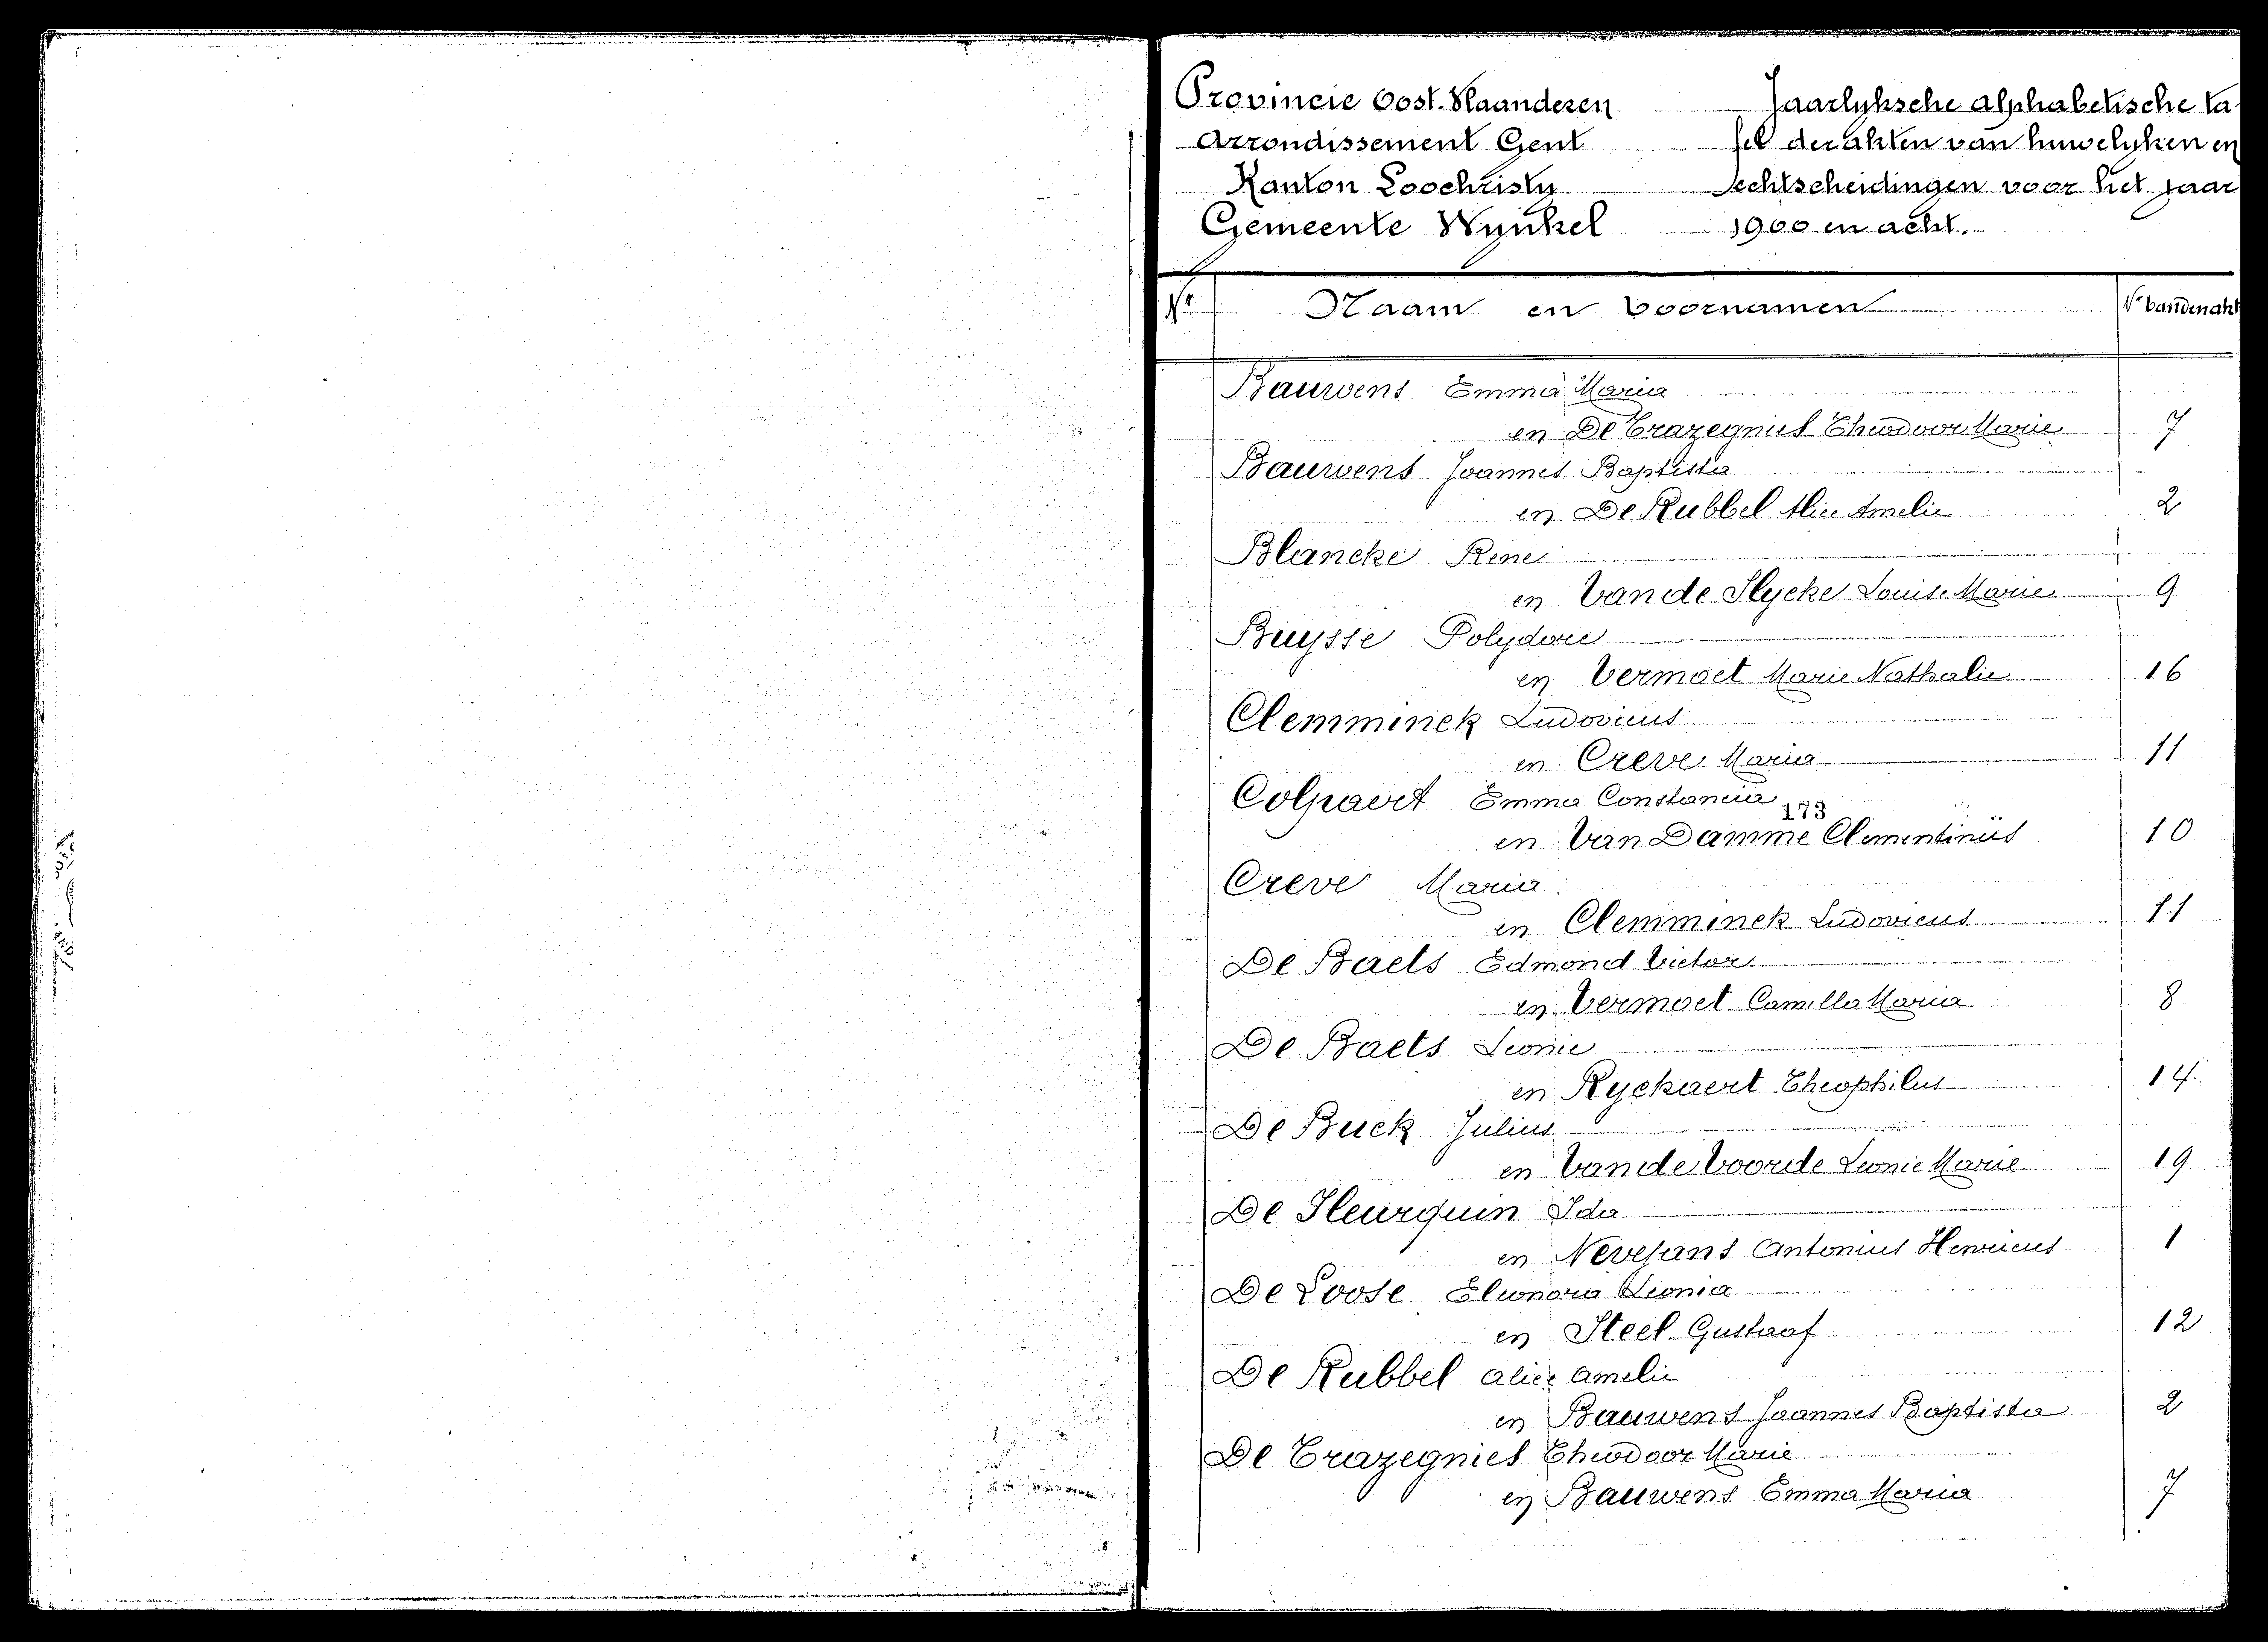 Provincie Oost-Vlaanderen
Arrondissement Gent
Kanton Loochristy
Gemeente Wynkel
Jaarlyksche alphabetische ta-
fel der akten van huwelyken en
echtscheidingen voor het jaar
1900 en acht.
Nr Naam en Voornamen Nr van den akt
Bauwens Emma Maria
en De Trazegnies Theodoor Marie 7
Bauwens Joannes Baptista
en De Rubbel Alice Amelie 2
Blancke Rene
en Van de Slycke Louise Marie 9
Buysse Polydore
en Vermaet Marie Nathalie 16
Clemminck Ludovicus
en Creve Maria 11
Colpaert Emma Constancia
173
en Van Damme Clementinus 10
Creve Maria
en Clemminck Ludovicus 11
De Baets Edmond Victor
en Vermaet Camilla Maria 8
De Baets Leonie
en Ryckaert Theophilus 14
De Buck Julius
en Van de Voorde Leonie Marie 19
De Fleurquin Ida
en Nevejans Antonius Henricus 1
De Loose Eleonora Leonia
en Steel Gustaaf 12
De Rubbel Alice Amelie
en Bauwens Joannes Baptista 2
De Trazegnies Theodoor Marie
en Bauwens Emma Maria 7